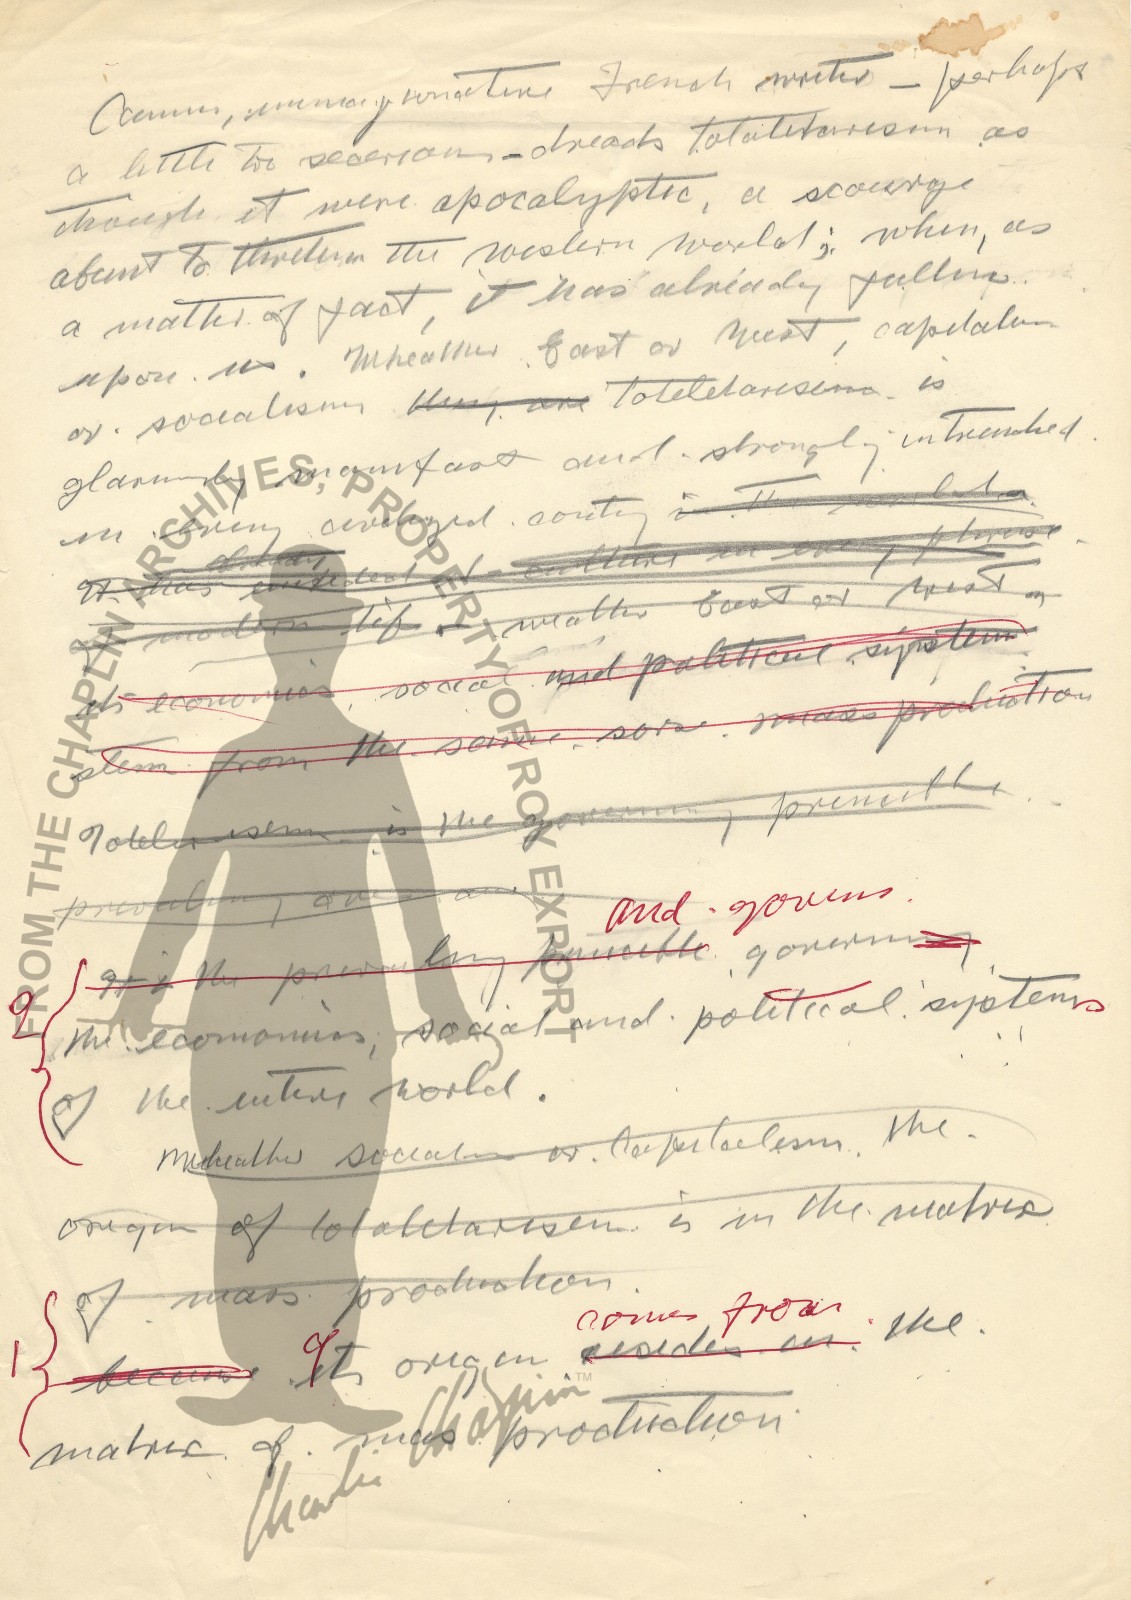 Camus, immaginative French writer – perhaps
a little too – dreads totaletarisum as
though it were apocalyptic, a scourge
about to thretten the western world; when, as
a matter of fact, it has already fallen
upon us. Wheather East or West, capitalism
or socialism they are totaletarisem is
glaringly manifast and strongly intrenched
in every civilized contry in the
already
It has culture in every phrase
of modern life – weather East or West –
its economics, social and political system
stem from the same sorse mass production
is the governing princible
prevailing over
and govens
It is the prevailing princible governing
2 the economics, social and political systems
of the entire world.
Wheather socialism or Capitaelesm, the
origen of totaletarisem is in the matrix
of mass production.
comes from
1 because It's origen resides in the
matrix of mass production.
FROM THE CHAPLIN ARCHIVES, PROPERTY OF ROY EXPORT
Charlie Chaplin™